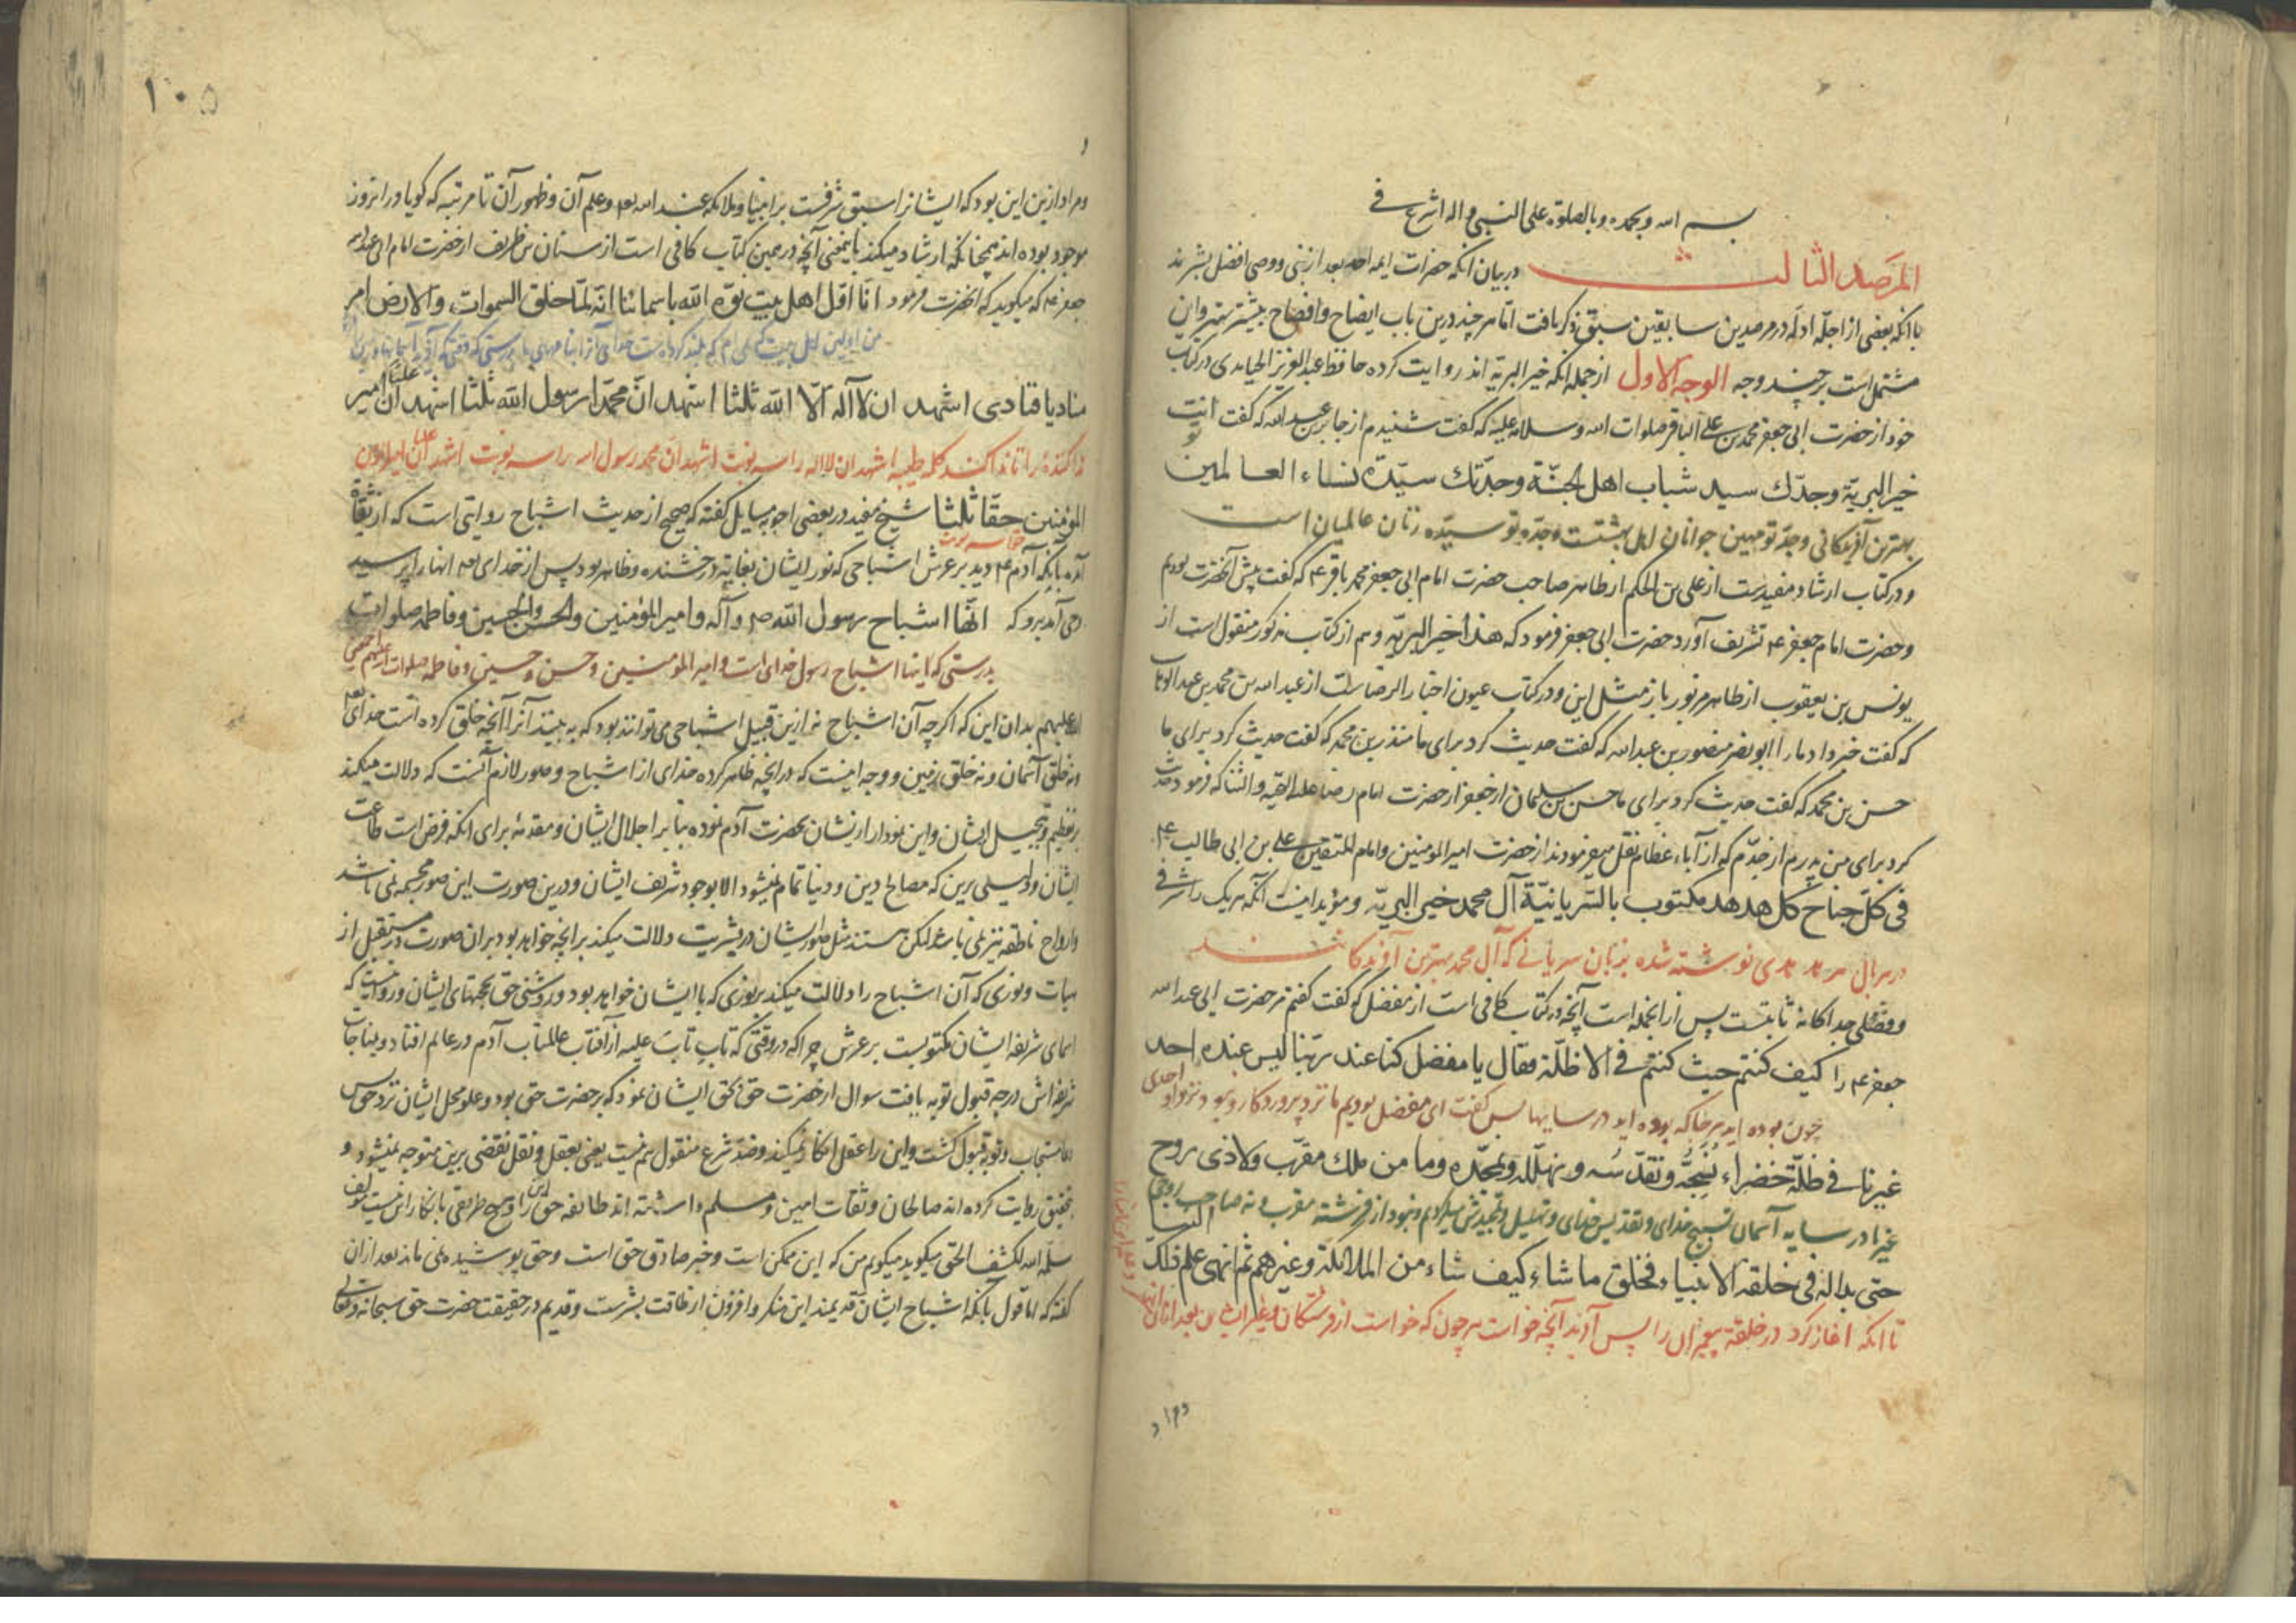 بسم الله وبحمده وبالصلوة علی النبی واله اشرع فی
المرصد الثالث در بیان انکه حضرات ایمه احد بعد از نبی و وصی افضل بشرند
با انکه بعضی از اجلّه ادله در مرصدین سابقین سبق ذکر یافت اما هر چند درین باب ایضاح و افضاح بیشتر بهتر و این
مشتمل است بر چند وجه الوجه الاول از جمله انکه خیر البریه اند روایت کرده حافظ عبد العزیز در کتاب
خود از حضرت ابی جعفر محمد بن علی الباقر صلوات الله وسلامه علیه که گفت شنیدم از جابر بن عبد الله که گفت انت
خیر البریّة وجدّك سید شباب اهل الجنّة وجدّتك سیّدة نساء العالمین
بهترین آفریدگانی وجدّ تو مهین جوانان اهل بهشتست وجدّه تو سیّده زنان عالمیان است
و در کتاب ارشاد مفیدست از علی بن الحکم از طاهر صاحب حضرت امام ابی جعفر محمد باقر ع که گفت پیش آنحضرت بودم
و حضرت امام جعفر ع تشریف آورد حضرت ابی جعفر فرمود که هذا خیر البریّه و هم از کتاب مذکور منقول است از
یونس بن یعقوب از طاهر مزبور باز مثل این و در کتاب عیون اخبار الرضاست از عبد الله بن محمد بن عبد الوهاب
که گفت خبر داد ما را ابو نصر منصور بن عبد الله که گفت حدیث کرد برای ما منذر بن محمد که گفت حدیث کرد برای ما
حسن بن محمد که گفت حدیث کرد برای ما حسن بن سلیمان از جعفر از حضرت امام رضا علیه التحیه والثنا که فرمود حدیث
کرد برای من پدرم از جدّم که از آباء عظام نقل میفرمودند از حضرت امیر المومنین وامام المتقین علی بن ابی طالب ع
فی کلّ جناح کل هدهد مکتوب بالسّریانیّة آل محمد خیر البریّه ومؤید اینست آنکه هر یک را شرفی
در هر بال هر هدهدی نوشته شده بزبان سریانی که آل محمد بهترین آفریدگانند
وفضلی جداگانه ثابتست پس از انجمله است آنچه در کتاب کافی است از مفضل که گفت گفتم مر حضرت ابی عبد الله
جعفر ع را کیف کنتم حیث کنتم فی الاظلّة فقال یا مفضل کنّا عند ربّنا لیس عنده احد
چون بوده اید هر جا که بوده اید در سایها پس گفت ای مفضل بودیم ما نزد پروردگار و نبود نزد او احدی
غیرنا فی ظلّة خضراء نسبّحه ونقدّسه ونهلّله ونمجّده وما من ملك مقرّب ولا ذی روح
غیر ما در سایه آسمان تسبیح خدای و تقدیس خدای و تهلیل و تمجیدش میکردیم و نبود از فرشته مقرب و نه صاحب روحی
حتی بدا له فی خلقه الانبیاء فخلق ما شاء کیف شاء من الملائکة وغیرهم ثم انهی علم ذلك الینا
تا انکه اغاز کرد در خلقه پیغمبران را پس آفرید آنچه خواست هر چون که خواست از فرشتگان و غیر ایشان بعد از ان
ومراد
۱۰۵
ومراد ازین این بود که ایشانرا سبق شرفست بر انبیا وملائکه عند الله بعد وعلم آن وظهور آن تا مرتبه که گویا در انروز
موجود بوده اند همچنانکه ارشاد میکند باینمعنی آنچه در همین کتاب کافی است از سنان بن ظریف از حضرت امام ابی عبد الله
جعفر ع که میگوید که انحضرت فرمود انّا اوّل اهل بیت نوّه الله باسمائنا انّه لمّا خلق السموات والارض امر
منادیا فنادی اشهد ان لا آله الّا الله ثلثا اشهد انّ محمّدا رسول الله ثلثا اشهد انّ علیّا امیر
ندا کننده را تا ندا کند کلمه طیبه اشهد ان لا اله را سه نوبت اشهد ان محمد رسول الله را سه نوبت اشهد ان علیا امیر المؤمنین
المؤمنین حقّا ثلثا شیخ مفید در بعضی اجوبه مسایل گفته که صحیح از حدیث اشباح روایتی است که از ثقاة
آمده بانکه آدم ع دید بر عرش اشباحی که نور ایشان بغایة درخشنده وظاهر بود پس از خدای تعه انها را پرسید
وحی آمد برو که انّها اشباح رسول الله ص وآله وامیر المؤمنین والحسن والحسین وفاطمه صلوات
بدرستی که اینها اشباح رسول خدای است وامیر المومنین وحسن وحسین وفاطمه صلوات الله علیهم اجمعین
الله علیهم بدان این که اگرچه آن اشباح نه ازین قبیل اشباحی می توانند بود که به بینند آنرا آنچه خلق کرده است خدای
نه خلق آسمان ونه خلق زمین ووجه اینست که در آنچه ظاهر کرده خدای از اشباح وصور لازم آنست که دلالت میکند
بر تعظیم وتبجیل ایشان واین نمودار از نشان بحضرت آدم نموده بنا بر اجلال ایشان ومقدمه برای انکه فرض است طاعت
ایشان ودلیلی برین که مصالح دین ودنیا تمام نمیشود الا بوجود شریف ایشان ودرین صورت این صور مجسمه نمی باشد
وارواح ناطقه نیز نمی باشد لیکن هستند مثل صور ایشان در بشریت دلالت میکند بر انچه خواهد بود بران صورت در مستقبل از
هیات ونوری که آن اشباح را دلالت میکند بر نوری که با ایشان خواهد بود وروشنی حق بحجتهای ایشان ورواست که
اسمای شریفه ایشان مکتوبست بر عرش چرا که در وقتی که تاب تابت علیه از آفتاب عالمتاب آدم در عالم افتاد ومناجات
شریفه اش درجه قبول توبه یافت سوال از حضرت حق بحق ایشان نمود که بر حضرت حق بود وعلو محل ایشان نزد حق پس
دعا مستجاب وتوبه قبول گشت واین را عقل انکار نمیکند وضد شرع منقول هم نیست یعنی بعقل ونقل نقضی برین متوجه نمیشود و
بتحقیق روایت کرده اند صالحان وثقات امین ومسلم داشته اند طایفه حق این را وهیچ طریقی بانکار این نیست مولف
سلّمه الله لکشف الحق میگوید میگویم من که این ممکن است وخبر صادق حق است وحق پوشیده نمی ماند بعد از ان
گفته که اما قول بانکه اشباح ایشان قدیمند این منکر وافزون از طاقت بشرست وقدیم در حقیقت حضرت حق سبحانه وتعالی